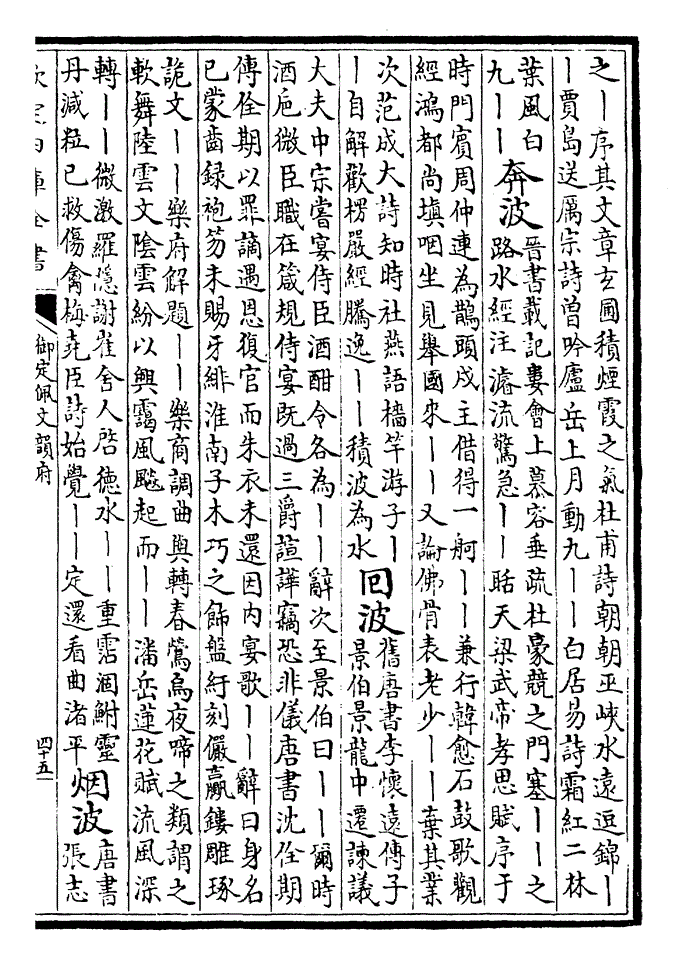 之丨序其文章玄圃積煙霞之氣杜甫詩朝朝巫峽水遠逗錦丨
丨賈島送厲宗詩曾吟廬岳上月動九丨丨白居易詩霜紅二林
葉風白
九丨丨
奔波
晉書載記婁會上慕容垂疏杜豪競之門塞丨丨之
路水經注濬流驚急丨丨聒天梁武帝孝思賦序于
時門賓周仲連為鵲頭戍主借得一舸丨丨兼行韓愈石鼓歌觀
經鴻都尚填咽坐見舉國來丨丨又論佛骨表老少丨丨棄其業
次范成大詩知時社燕語檣竿游子丨
丨自解歡楞嚴經騰逸丨丨積波為水
回波
舊唐書李懷遠傳子
景伯景龍中遷諫議
大夫中宗嘗宴侍臣酒酣令各為丨丨辭次至景伯曰丨丨爾時
酒巵微臣職在箴規侍宴既過三爵諠譁竊恐非儀唐書沈佺期
傳佺期以罪謫遇恩復官而朱衣未還因内宴歌丨丨辭曰身名
已蒙齒録袍笏未賜牙緋淮南子木巧之飾盤紆刻儼嬴鏤雕琢
詭文丨丨樂府解題丨丨樂商調曲與轉春鶯烏夜啼之類謂之
軟舞陸雲文陰雲紛以興靄風飈起而丨丨潘岳蓮花賦流風深
轉丨丨微激羅隱謝崔舍人啓德水丨丨重霑涸鮒靈
丹減粒已救傷禽梅堯臣詩始覺丨丨定還看曲渚平
烟波
唐書
張志
欽定四庫全書
御定佩文韻府
四十五